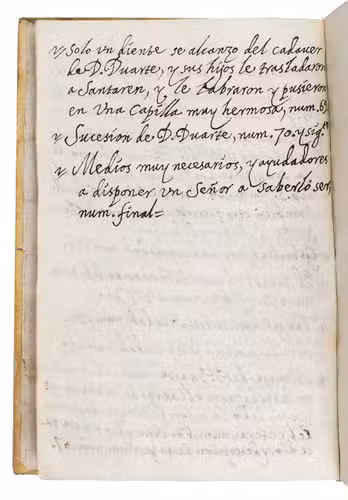 y solo vn diente se alcanzo del cadauer
de D. Duarte, y sus hijos le trasladaron
a Santaren, y le labraron y pusieron
en vna Capilla muy hermosa, num. 69
y Sucesion de D. Duarte, num. 70. y sigtes
y Medios muy necesarios, y ayudadores
a disponer vn Señor a saberlo ser,
num. final=